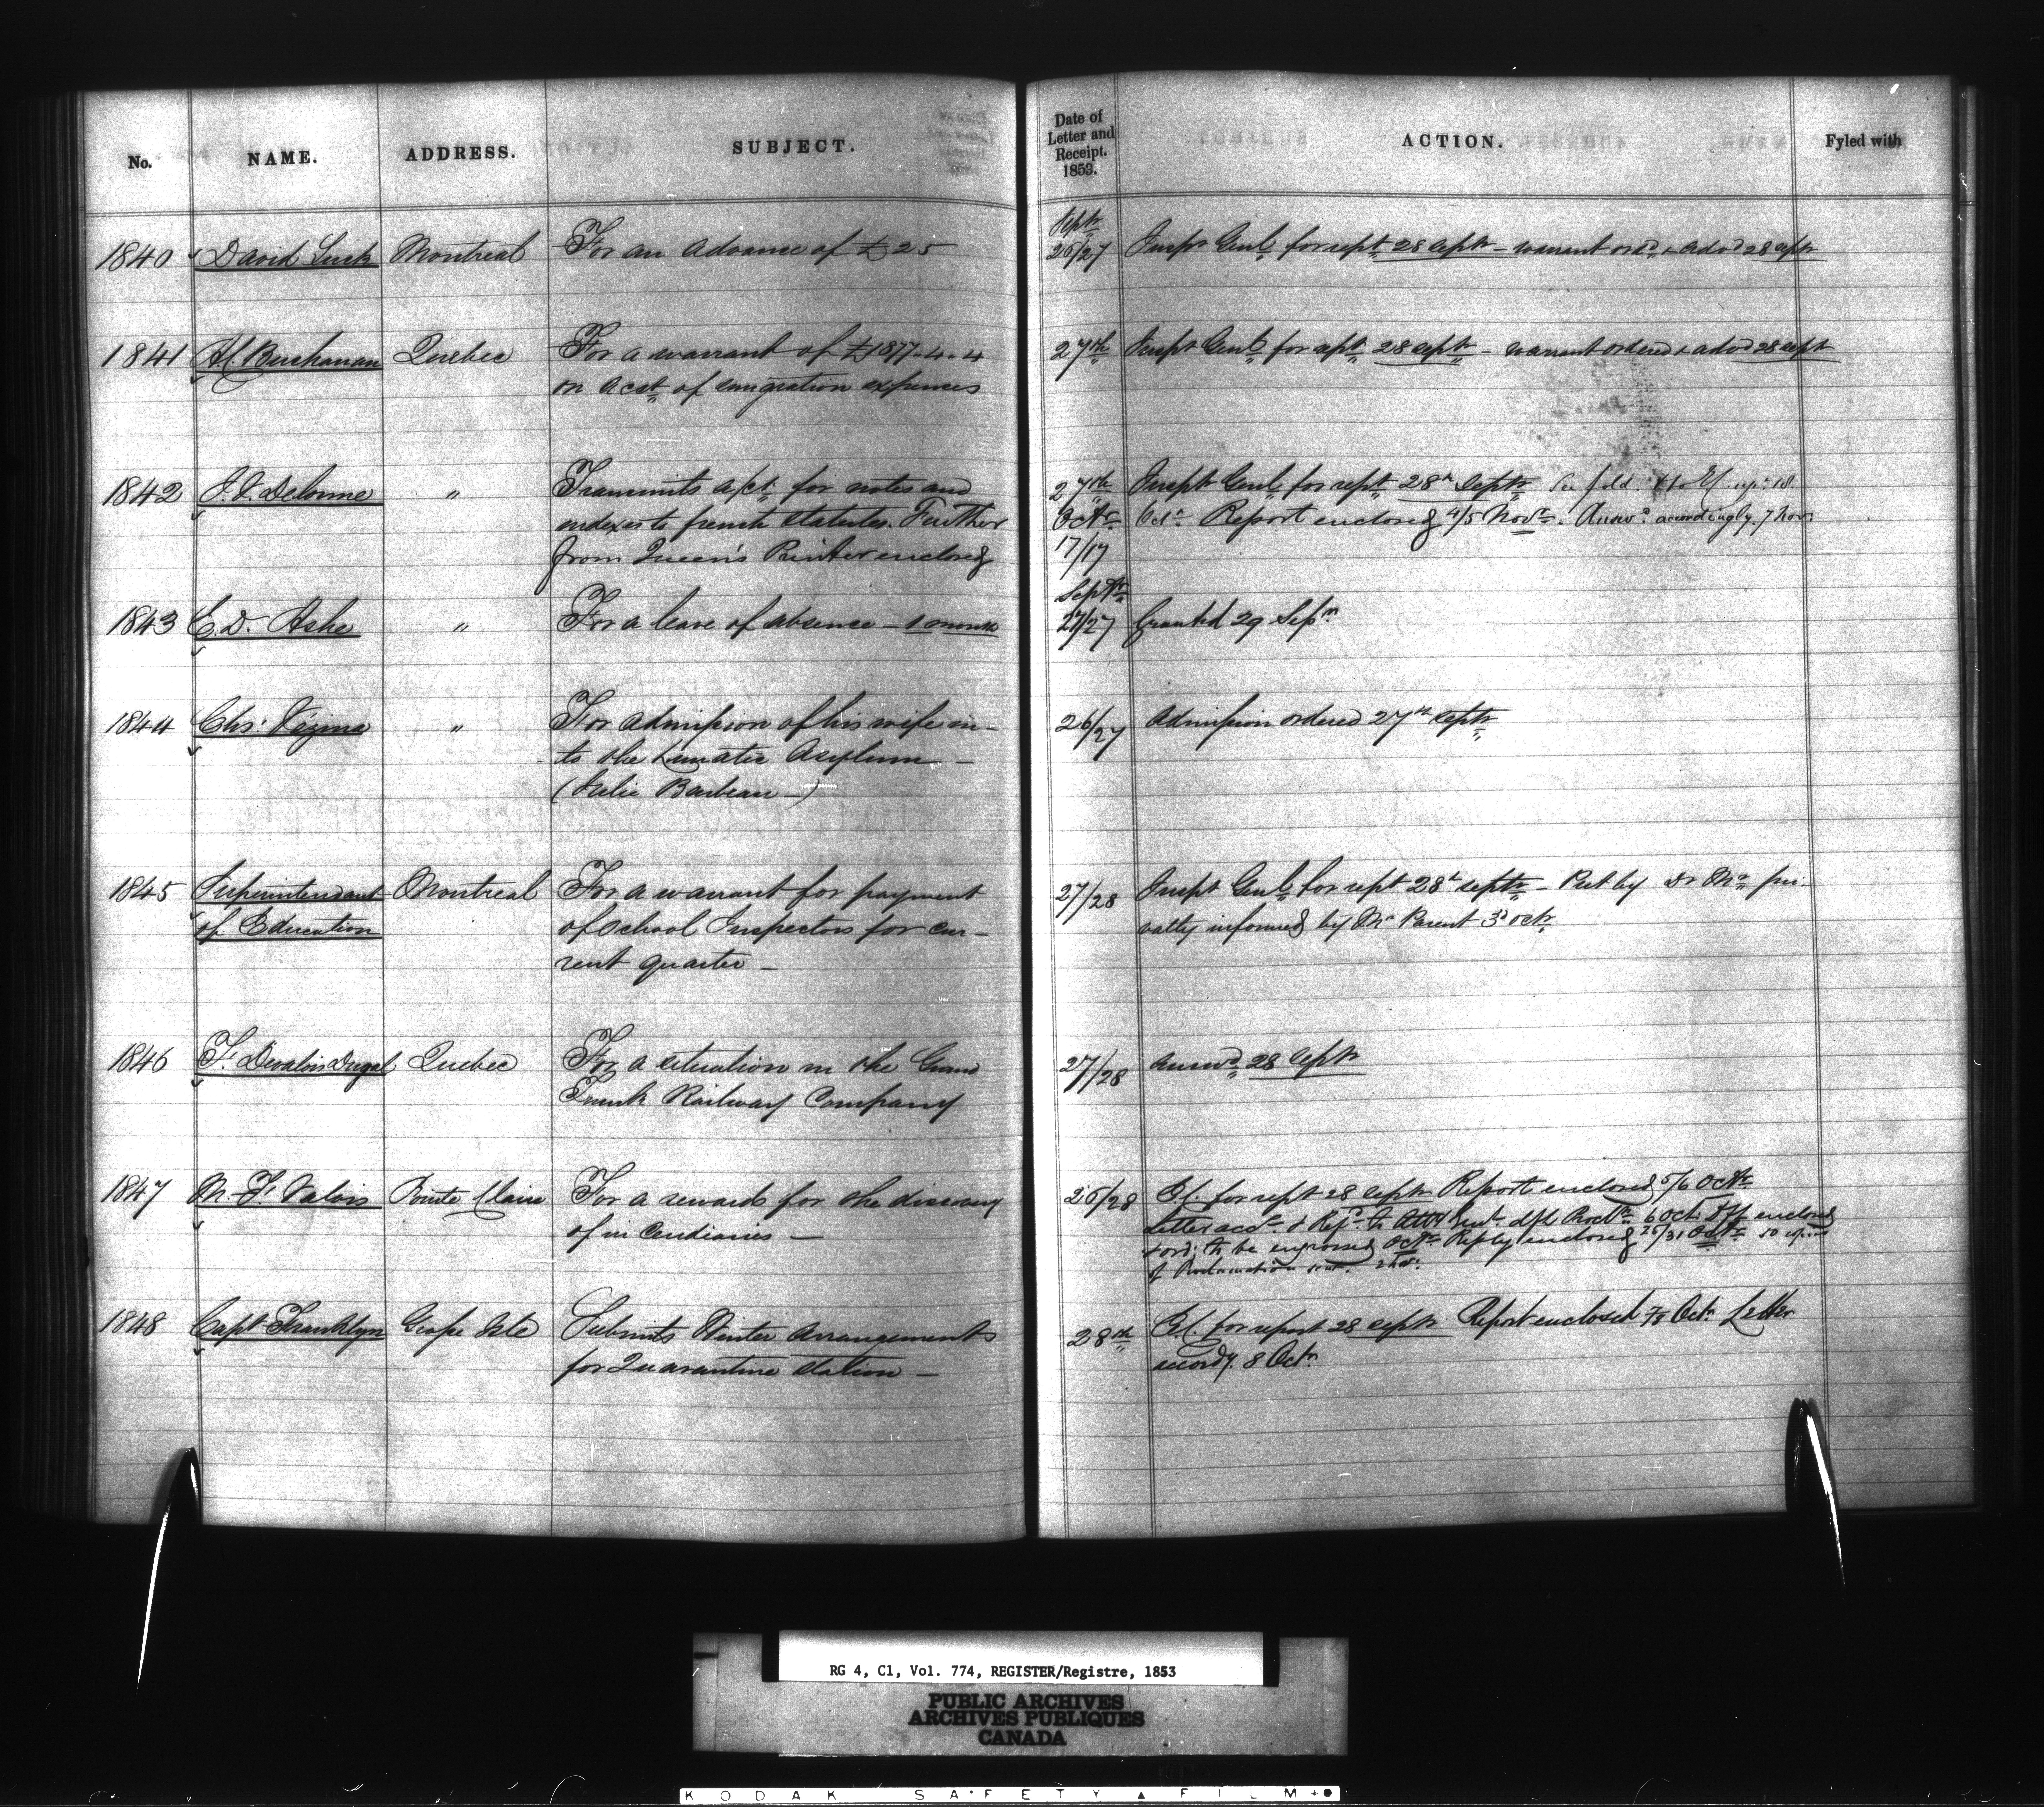 No.
NAME.
ADDRESS.
SUBJECT.
Date of
Letter and
Receipt.
1853.
ACTION.
Fyled with
1840 David Luck Montreal For an advance of £25
Septr
26/27 Inspr Genl for rept 28 septr - warrant ord & advd 28 septr
1841 AC Buchanan Quebec For a warrant of £1877-4-4
on acct of emigration expenses
27th Inspr Genl for rept 28 septr - warrant ordered & advd 28 septr
1842 Delorme " Transmits a/ct for notes and
indexes to french Statutes. Further
from Queen's Printer enclosed
27th Inspr Genl for rept 28th Septr
Octr Octr Report enclosed 4/5 Novr. Answd accordingly 7 Novr
17/17
1843 E. D. Ashe " For a leave of absence - 1 month
Septr
27/27 Granted 29 Sepr
1844 Chs: Vézina " For admission of his wife in-
to the Lunatic Asylum -
(Julie Barbeau -)
26/27 Admission ordered 27th Septr
1845 Superintendant Montreal For a warrant for payment
of Education of School Inspectors for cur-
rent quarter -
27/28 Inspr Genl for rept 28th septr - Put by Dr M pri-
vatly informed by Mr Parent 3d octr
1846 F. Dugal Quebec For a situation in the Grand
Trunk Railway Company
27/28 answd 28 Septr
1847 M. F. Valois Pointe Claire For a reward for the discovery
of incendiaries -
26/28 for rept 28 septr Report enclosed 5/6 Octr
Letter accy & Refd to Atty Genl dft Procln 6 Oct. enclosed
& ord: to be engrossed Octr Reply enclosed 26/31 Octr 50 copies
of Proclamation 2 Nov:
1848 Capt Franklyn Grosse Isle Submits Winter Arrangements
for Quarantine Station -
28th for report 28 septr Report enclosed 7/8 Octr Letter
accordy. 8 Octr
RG 4, C1, Vol. 774, REGISTER/Registre, 1853
PUBLIC ARCHIVES
ARCHIVES PUBLIQUES
CANADA
KODAK SAFETY FILM